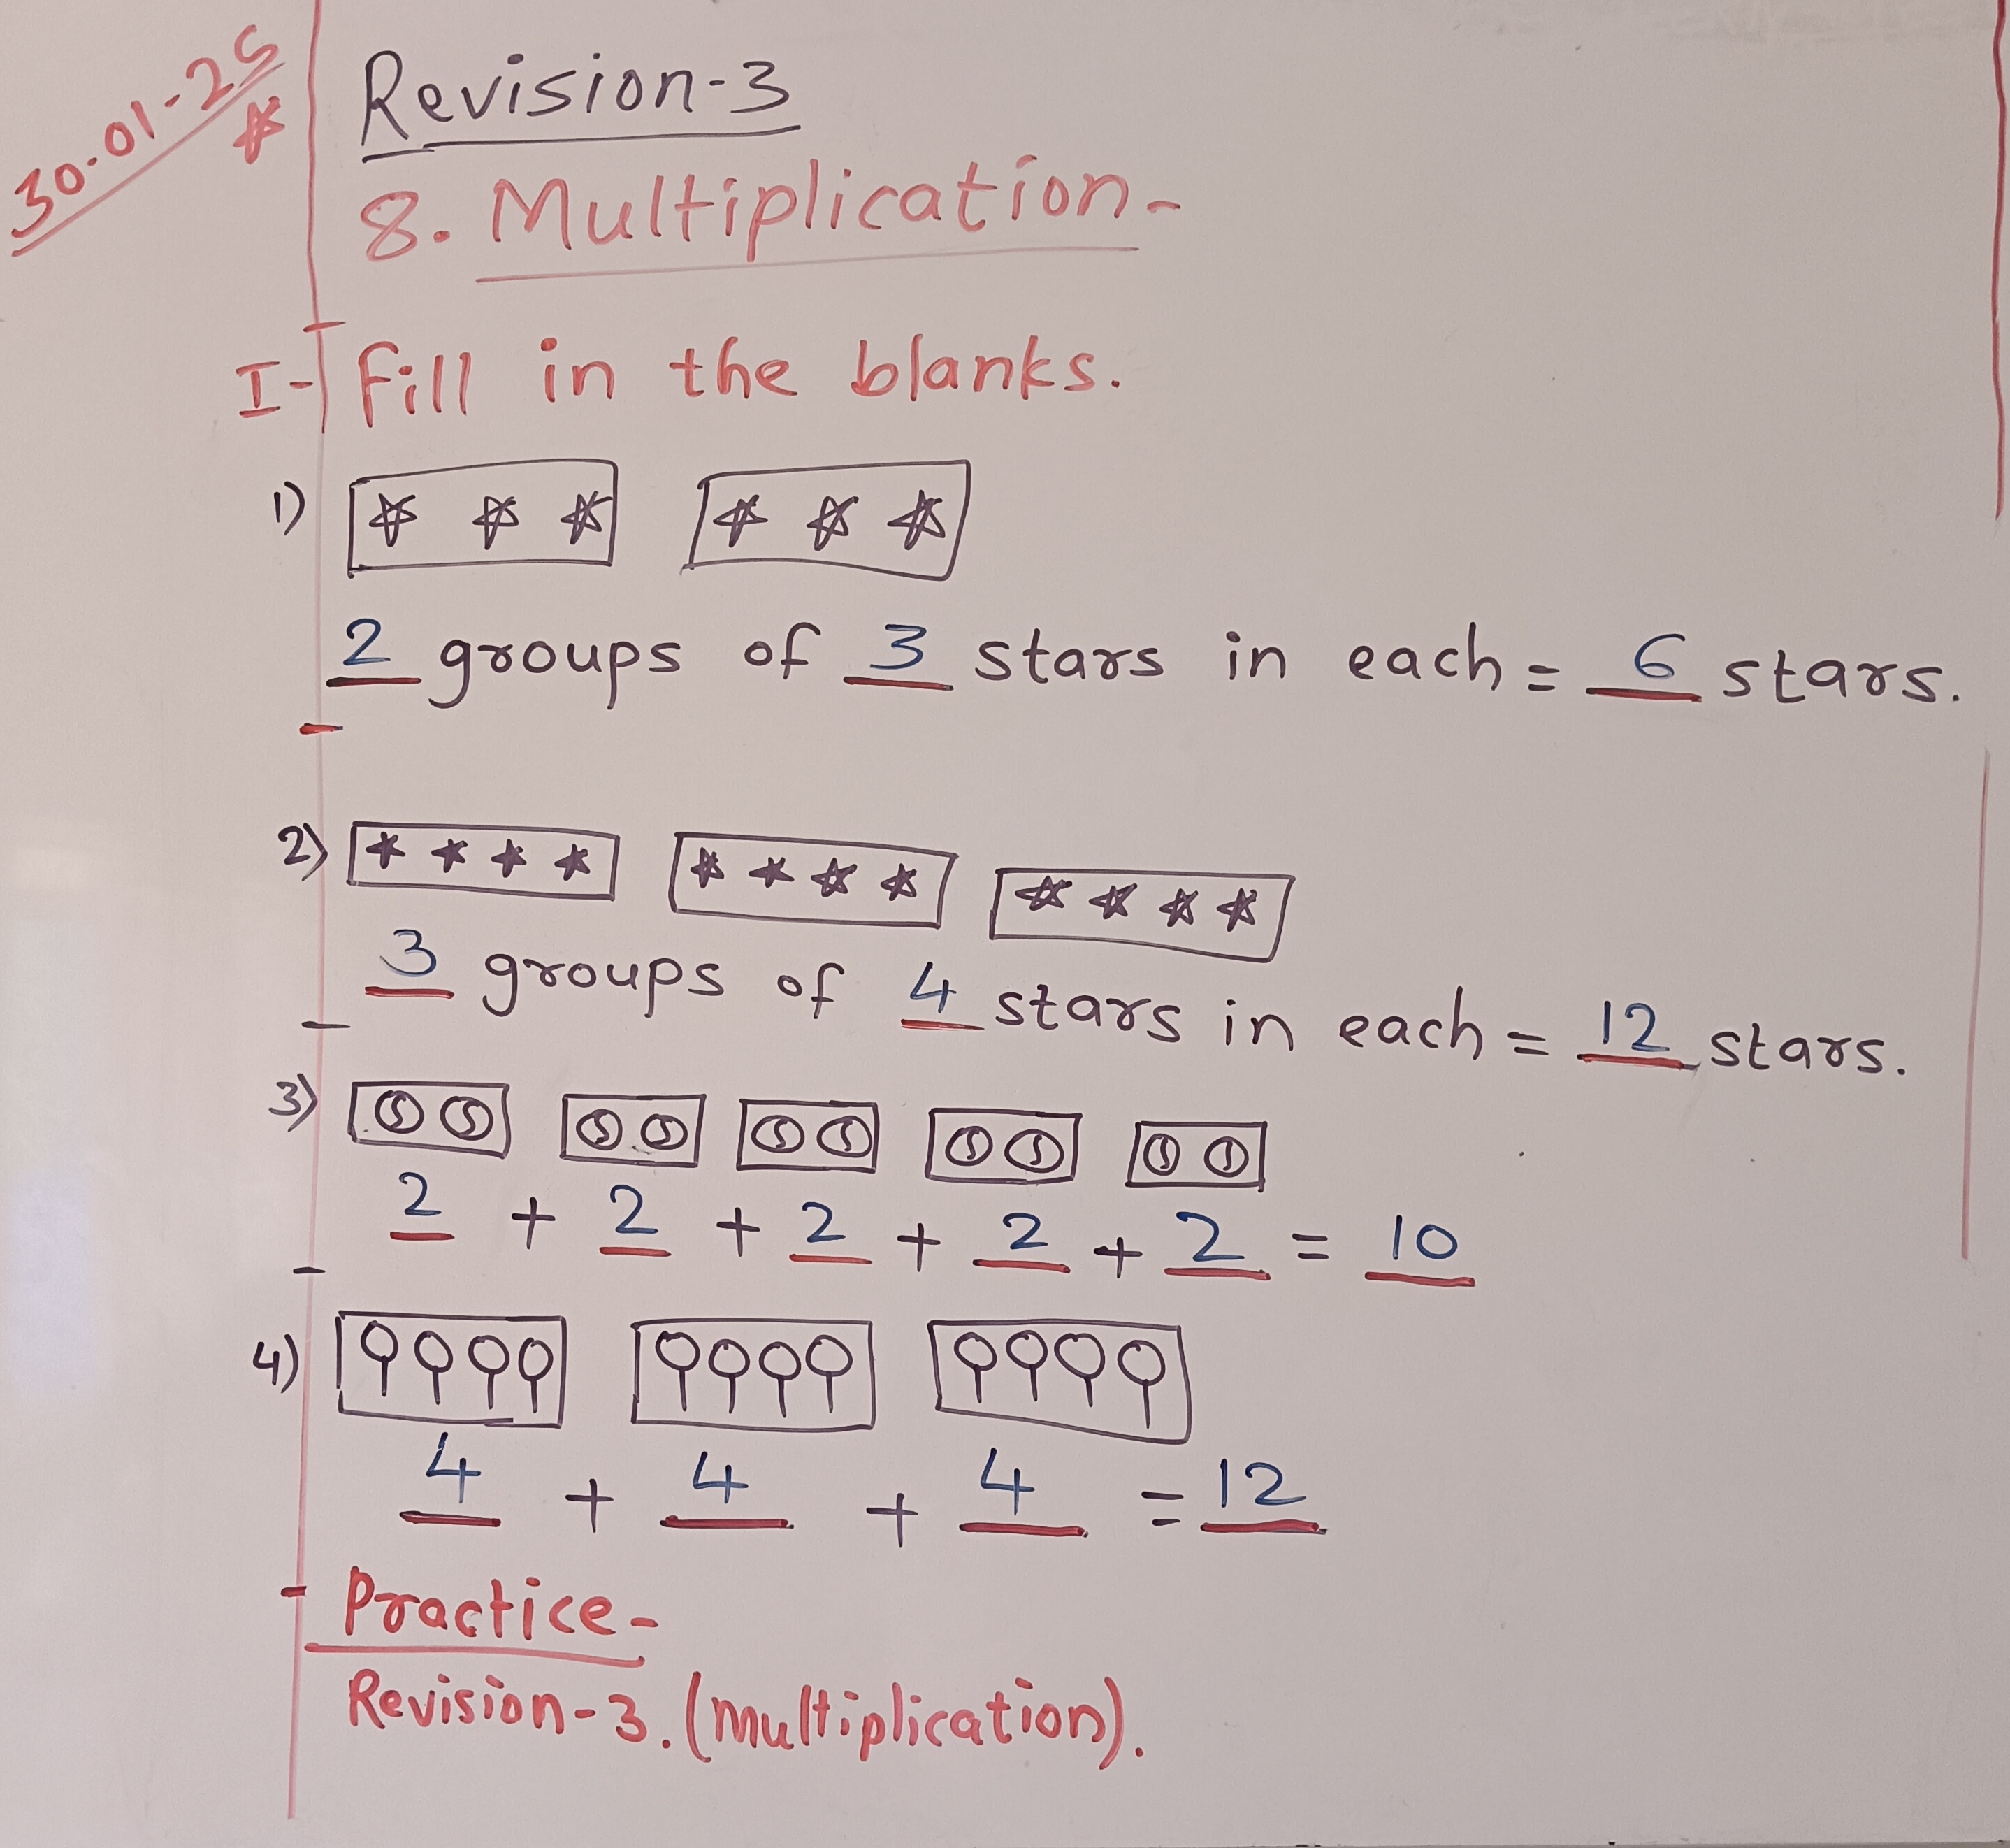 30-01-25
Revision-3
8. Multiplication-
I- Fill in the blanks.
1)
2 groups of 3 stars in each = 6 stars.
2)
3 groups of 4 stars in each = 12 stars.
3)
2 + 2 + 2 + 2 + 2 = 10
4)
4 + 4 + 4 = 12
Practice-
Revision-3. (multiplication).